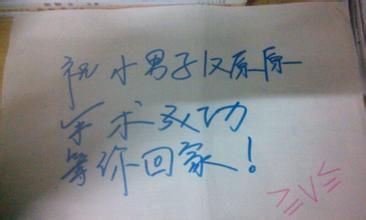 祝小男子汉原原
手术成功
等你回家！
≥V≤